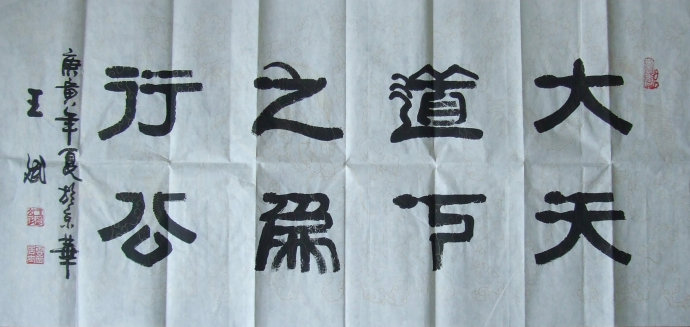 大道之行
天下爲公
庚寅年夏於京華
王斌